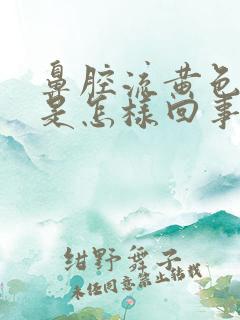 鼻腔流黄色
是怎样回事
绀野舜子
未经同意禁止转载